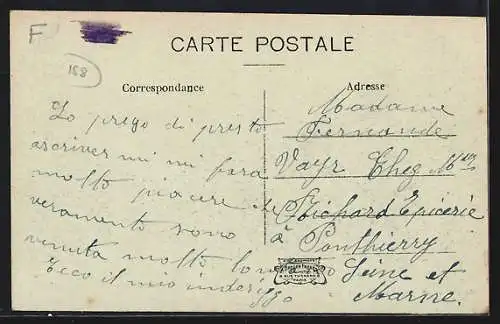 F
168
CARTE POSTALE
Correspondance
Adresse
Lo prego di presto
scriver mi mi fara
molto piacere de
veramento sono
venuta molto bene
Ecco il mio indirizzo
Madame
Fernande
Vayr Chez Mr
Richard Epicerie
à Ponthierry
Seine et
Marne.